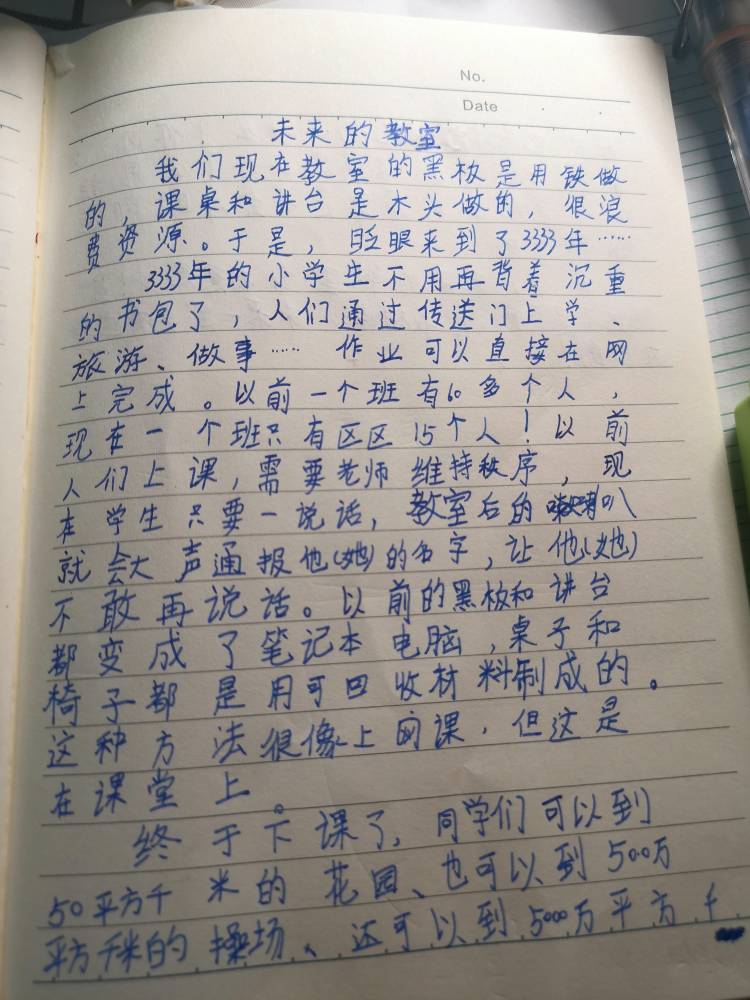 No.
Date
未来的教室
我们现在教室的黑板是用铁做
的，课桌和讲台是木头做的，很浪
费资源。于是，眨眼来到了3333年……
3333年的小学生不用再背着沉重
的书包了，人们通过传送门上学、
旅游、做事……作业可以直接在网
上完成。以前一个班有60多个人，
现在一个班只有区区15个人！以前
人们上课，需要老师维持秩序，现
在学生只要一说话，教室后的喇叭
就会大声通报他(她)的名字，让他(她)
不敢再说话。以前的黑板和讲台
都变成了笔记本电脑，桌子和
椅子都是用可回收材料制成的。
这种方法很像上网课，但这是
在课堂上。
终于下课了，同学们可以到
50平方千米的花园、也可以到500万
平方千米的操场、还可以到5000万平方千